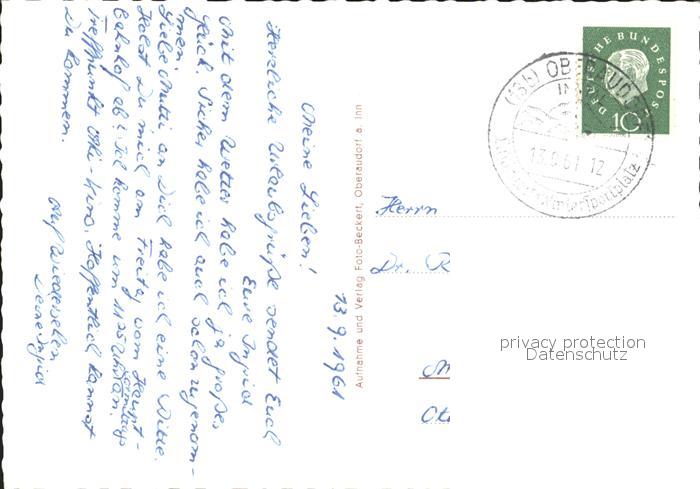 13. 9. 1961
Meine Lieben!
Herzliche Urlaubsgrüße sendet Euch
Eure Ingrid
Mit dem Wetter habe ich ja großes
Glück. Sicher habe ich auch schon zugenom-
men.
Liebe Mutti an Dich habe ich eine Bitte.
Holst Du mich am Freitag vom Haupt-
bahnhof ab? Ich komme um 11 25 Uhr an.
Treffpunkt Aki-Kino. Hoffentlich kannst
Du kommen.
Auf Wiedersehen
Deine Ingrid
Aufnahme und Verlag Foto-Beckert, Oberaudorf a. Inn
DEUTSCHE BUNDESPOST
10
(13b) OBERAUDORF
INN
13.9.61 12
Wintersportplatz
Herrn
Dr. R
privacy protection
Datenschutz